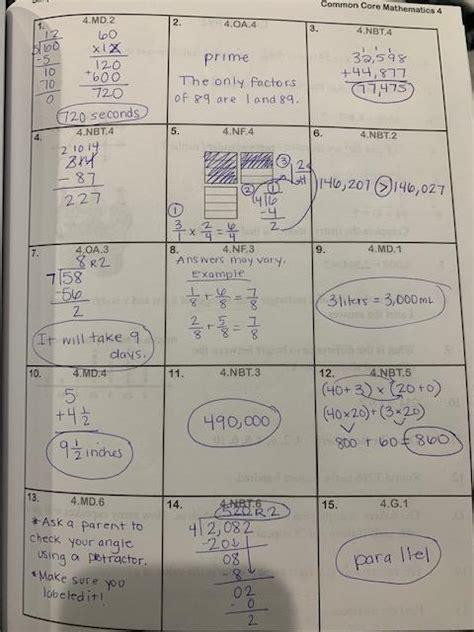 Common Core Mathematics 4
1. 4.MD.2
12
5)60
-5
10
10
0
60
x12
120
+600
720
720 seconds
2. 4.OA.4
prime
The only factors
of 89 are 1 and 89.
3. 4.NBT.4
1 1 1
32,598
+44,877
77,475
4. 4.NBT.4
2 10 14
314
- 87
227
5. 4.NF.4
3
1 2/4
2
1
4)6
-4
2
1
3/1 x 2/4 = 6/4
6. 4.NBT.2
146,207 > 146,027
7. 4.OA.3
8 R2
7)58
-56
2
It will take 9
days.
8. 4.NF.3
Answers may vary.
Example
1/8 + 6/8 = 7/8
2/8 + 5/8 = 7/8
9. 4.MD.1
3 liters = 3,000 mL
10. 4.MD.4
5
+4 1/2
9 1/2 inches
11. 4.NBT.3
490,000
12. 4.NBT.5
(40+3) x (20+0)
(40x20)+(3x20)
800 + 60 = 860
13. 4.MD.6
*Ask a parent to
check your angle
using a protractor.
*Make sure you
labeled it!
14. 4.NBT.6
520 R2
4)2,082
-20
08
-8
02
-0
2
15. 4.G.1
parallel